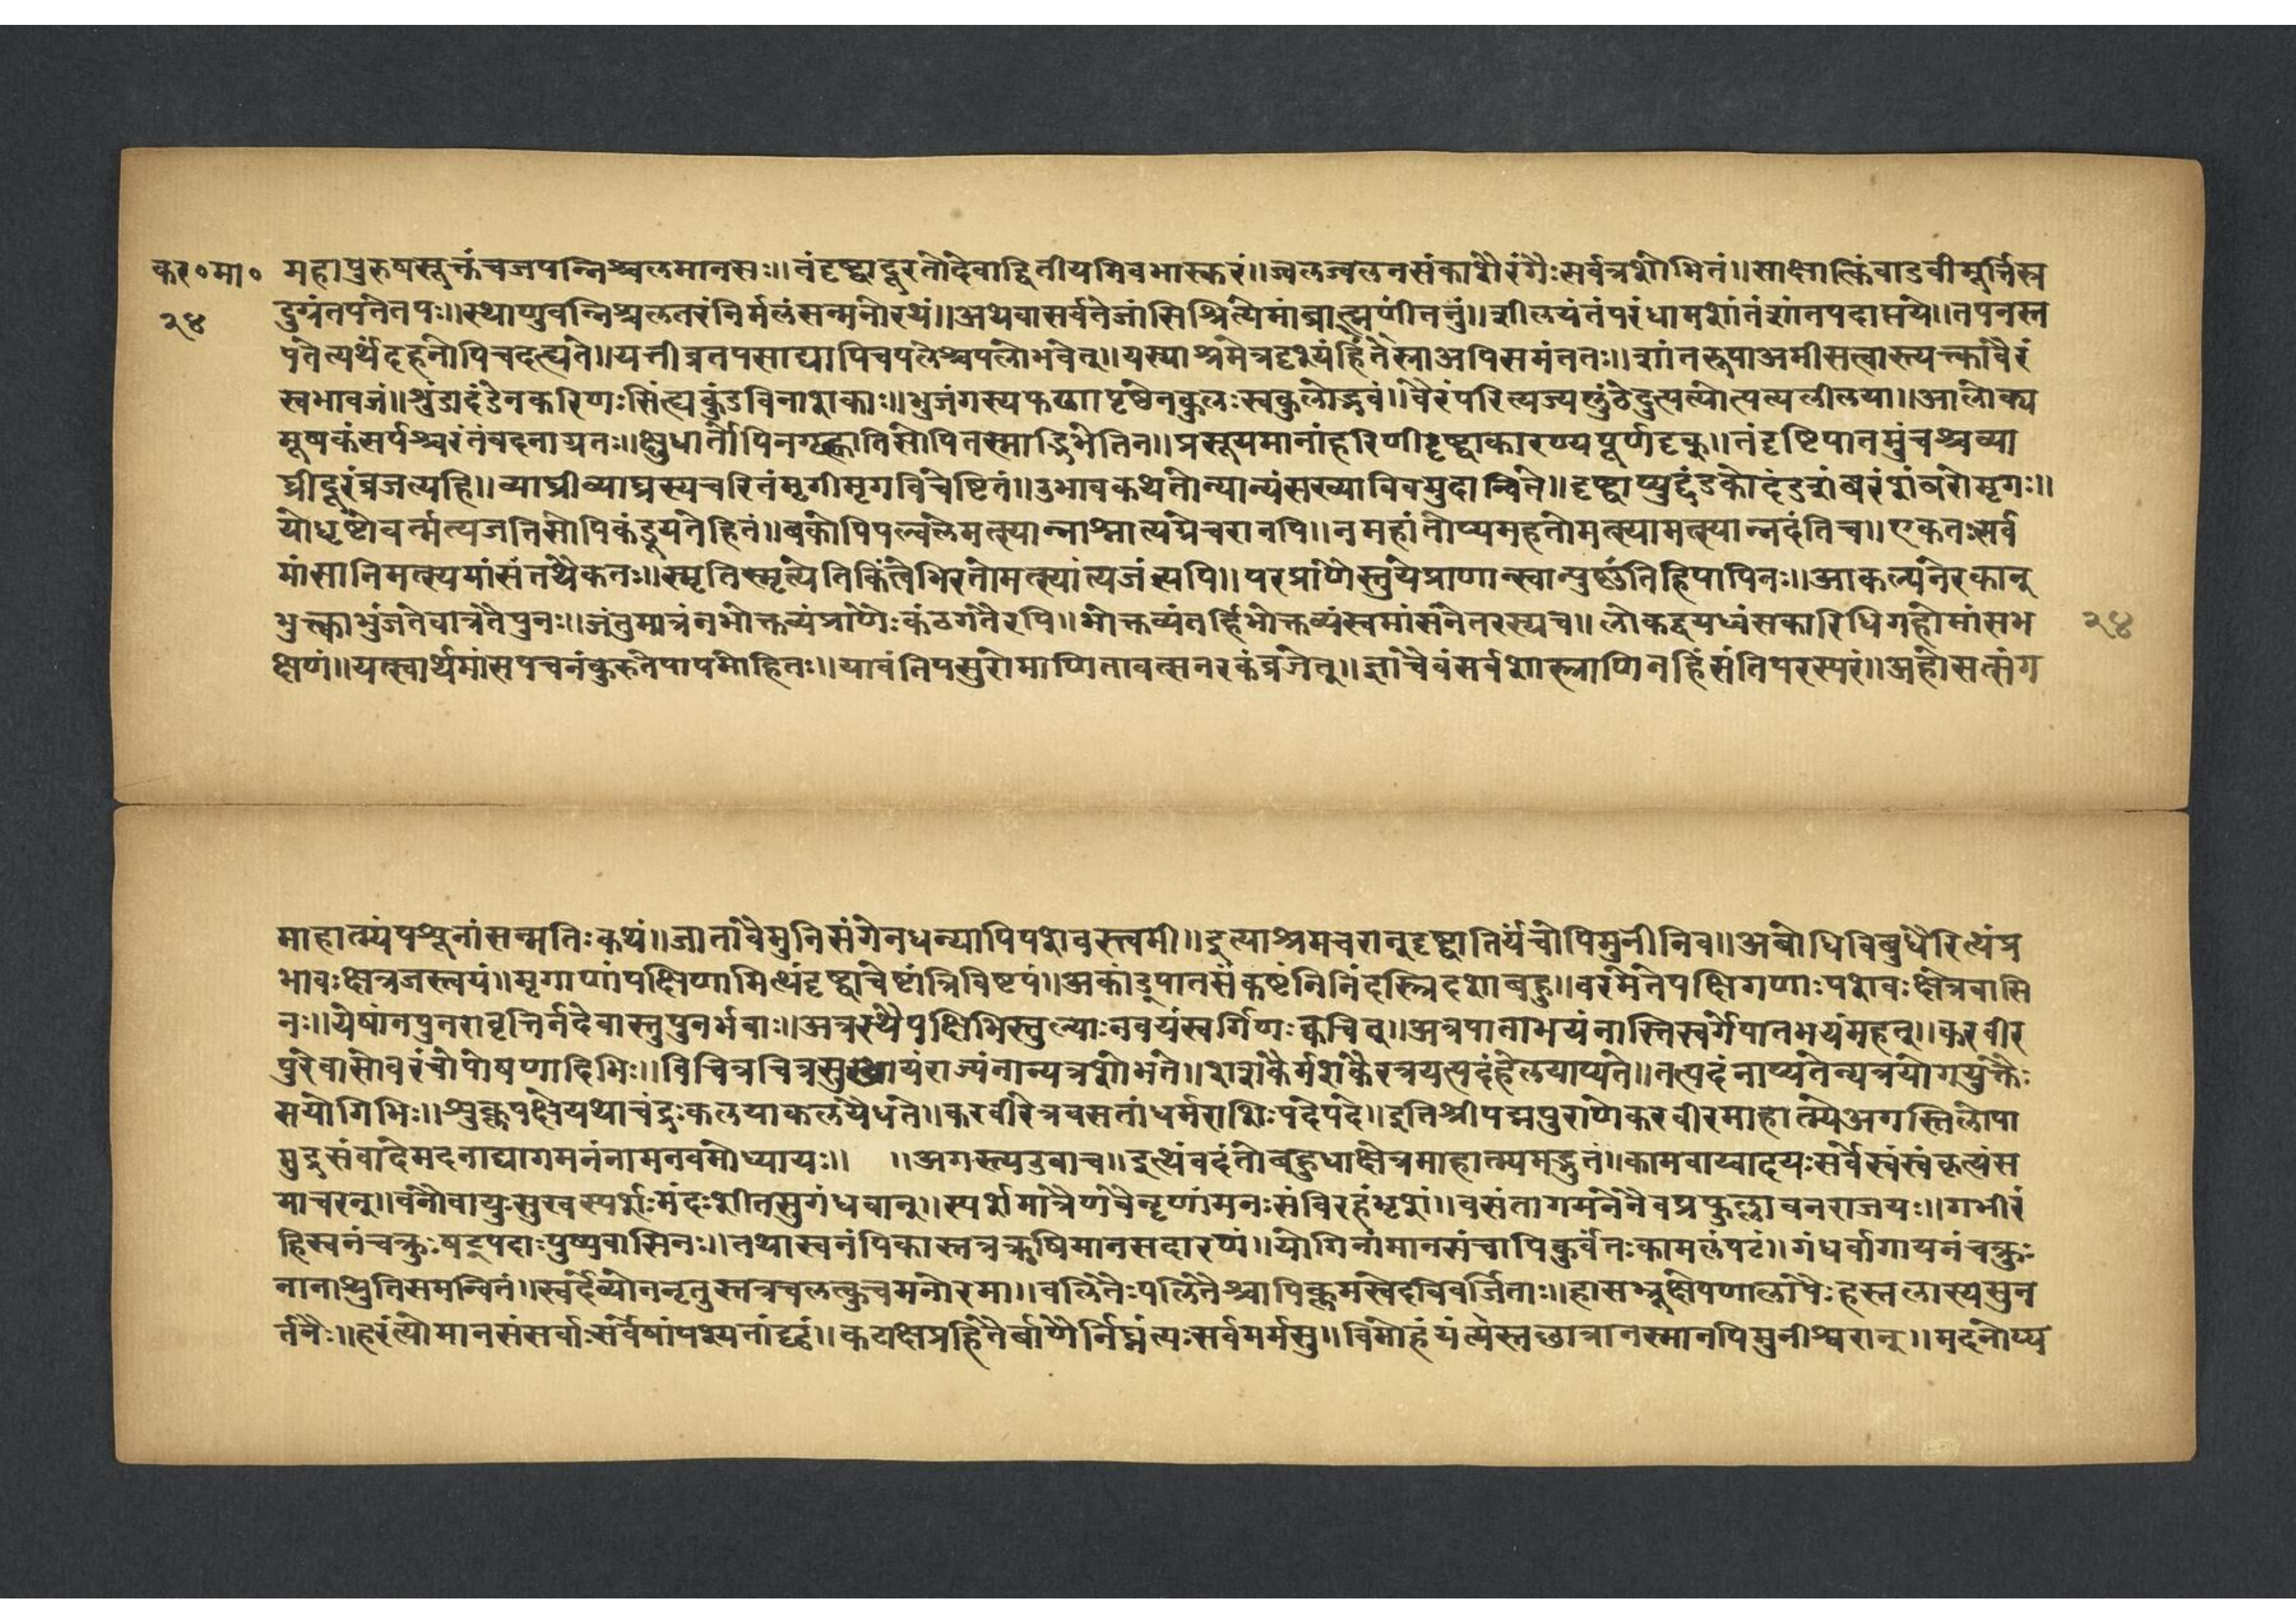 कर०मा० महापुरुषसूक्तंचजपन्निश्चलमानसः।।तंदृष्ट्वादूरतोदेवाद्वितीयमिवभास्करं।।ज्वलज्वलनसंकाशैरंगैःसर्वत्रशोभितं।।साक्षात्किंवाडवीमूर्त्तिस्त्व
२४ दुग्रंतपंतेतपः।।स्थाणुवन्निश्चलतरंनिर्मलंसन्मनोरथं।।अथेवासर्वतेजांसिश्रित्येमांब्राह्मणींतनुं।।शीलयंतंपरंधामशांतंशांतपदाप्तये।।तपनस्त
पतेत्यर्थेदहनोपिचदह्यते।।यत्तीव्रतपसाद्यापिचपलेश्चपलोभवेत्।।यस्याश्रमेत्रदृश्यंहिंतेस्राअपिसमंततः।।शांतरूपाअमीसत्वास्त्यक्त्कावैरं
स्वभावजं।।शुंडादंडेनकरिणःसिंह्यकुंडविनाशकाः।।भुजंगस्यफणापृष्ठेनकुलःस्वकुलोद्भवं।।वैरंपरित्यज्यलुंठेदुत्पत्योत्पत्यलीलया।।आलोक्य
मूषकंसर्पश्चरंतंवदनाग्रतः।।क्षुधार्तोपिनगृह्णातिसोपितस्माद्विभेतिन।।प्रसूयमानांहरिणींदृष्ट्वाकारण्यपूर्णदृक्।।तंदृष्टिपातमुंचश्चव्या
घ्रीदूरंव्रजत्यहि।।व्याघ्रीव्याघ्रस्यचरितंमृगीमृगविचेष्टितं।।उभावकथतोन्यान्यंसख्याविवमुदान्विते।।दृष्ट्वाप्युद्दंडकोदंडशंबरंशंबरोमृगः।।
योधृष्टोवर्त्मत्यजतिसोपिकंडूयतेहितं।।बकोपिपल्वलेमत्स्यान्नाश्नात्यग्रेचरानपि।।नमहांतोप्यमहतोमत्स्यामत्स्यान्नदंतिच।।एकतःसर्व
मांसानिमत्स्यमांसंतथैकतः।।स्मृतिस्मृत्येतिकिंत्वेभिरतोमत्स्यांत्यजंत्यपि।।परप्राणैस्तुयेप्राणान्स्वान्पुर्ष्णंतिहिपापिनः।।आकल्पंनेरकान्
भुक्त्काभुंजतेवात्रतेपुनः।।जंतुमात्रंनभोक्तव्यंप्राणैःकंठगतैरपि।।भोक्तव्यंतर्हिभोक्तव्यंस्वमांसंनेतरस्यच।।लोकद्वयध्वंसकारिधिगहोमांसभ २४
क्षणं।।यत्स्वार्थमांसपचनंकुरुतेपापमोहितः।।यावंतिपसुरोमाणितावत्सनरकंव्रजेत्।।ज्ञात्चैवंसर्वशास्त्राणिनहिंसंतिपरस्परं।।अहोसत्संग
माहात्म्यंपशूनांसन्मतिःकथं।।जातावैमुनिसंगेनधन्यापिपशवस्त्वमी।।इत्याश्रमचरान्दृष्ट्वातिर्यंचोपिमुनीनिव।।अबोधिविबुधैरित्थंप्र
भावःक्षेत्रजस्त्वयं।।मृगाणांपक्षिणामित्थंदृष्ट्वाचेष्टांत्रिविष्टपं।।अकांडुपातसंकष्टंनिनिंदस्त्रिदशाबहु।।वरमेतेपक्षिगणाःपशवःक्षेत्रवासि
नः।।येषांनपुनरावृत्तिर्नदेवास्तुपुनर्भवाः।।अत्रस्थैपक्षिभिस्तुल्याःनवयंस्वर्गिणःक्वचित्।।अत्रपाताभयंनास्तिस्वर्गेपातभयंमहत्।।करवीर
पुरेवासोवरंचोपोषणादिभिः।।विचित्रचित्रसुखायंराज्यंनान्यत्रशोभते।।शशंकैर्मशकैरत्रयत्पदंहेलयाप्यते।।तत्पदंनाप्यतेन्यत्रयोगयुक्तैः
सयोगिभिः।।शुक्लपक्षेयथाचंद्रःकलयाकलयैधते।।करवीरेत्रवसतांधर्मराशिःपदेपदे।।इतिश्रीपद्मपुराणेकरवीरमाहात्म्येअगस्तिलोपा
मुद्रसंवादेमदनाद्यागमनंनामनवमोध्यायः।। ।।अगस्त्यउवाच।।इत्थंवदंतोबहुधाक्षेत्रमाहात्म्यमद्भुतं।।कामवाय्वादयःसर्वेस्वंस्वंकृत्यंस
माचरन्।।वंतौवायुःसुखस्पर्शोःमंदःशीतसुगंधवान्।।स्पर्शमात्रेणवैनृणांमनःसंविरहंभृशं।।वसंतागमनेनैवप्रफुल्लावनराजयः।।गभीरं
हिस्वनंचक्रुःषट्पदाःपुष्पवासिनः।।तथास्वनंपिकास्तत्रऋषिमानसदारणं।।योगिनांमानसंचापिकुर्वंतःकामलंपटं।।गंधर्वागायनंचक्रुः
नानाश्रुतिसमन्वितं।।स्वर्देव्योननृतुस्तत्रचलत्कुचमनोरमा।।वलितैःपलितैश्चापिक्लमस्वेदविवर्जिताः।।हासभ्रूक्षेपणालापैःहस्तलास्यसुन
र्तनैः।।हरंत्योमानसंसर्वाःसर्वेषांपश्यतांदृढं।।कटाक्षप्रहितैर्बाणैर्निघ्नंत्यःसर्वमर्मसु।।विमोहंयंत्येस्तछात्रानस्मानपिमुनीश्वरान्।।मदनोप्य